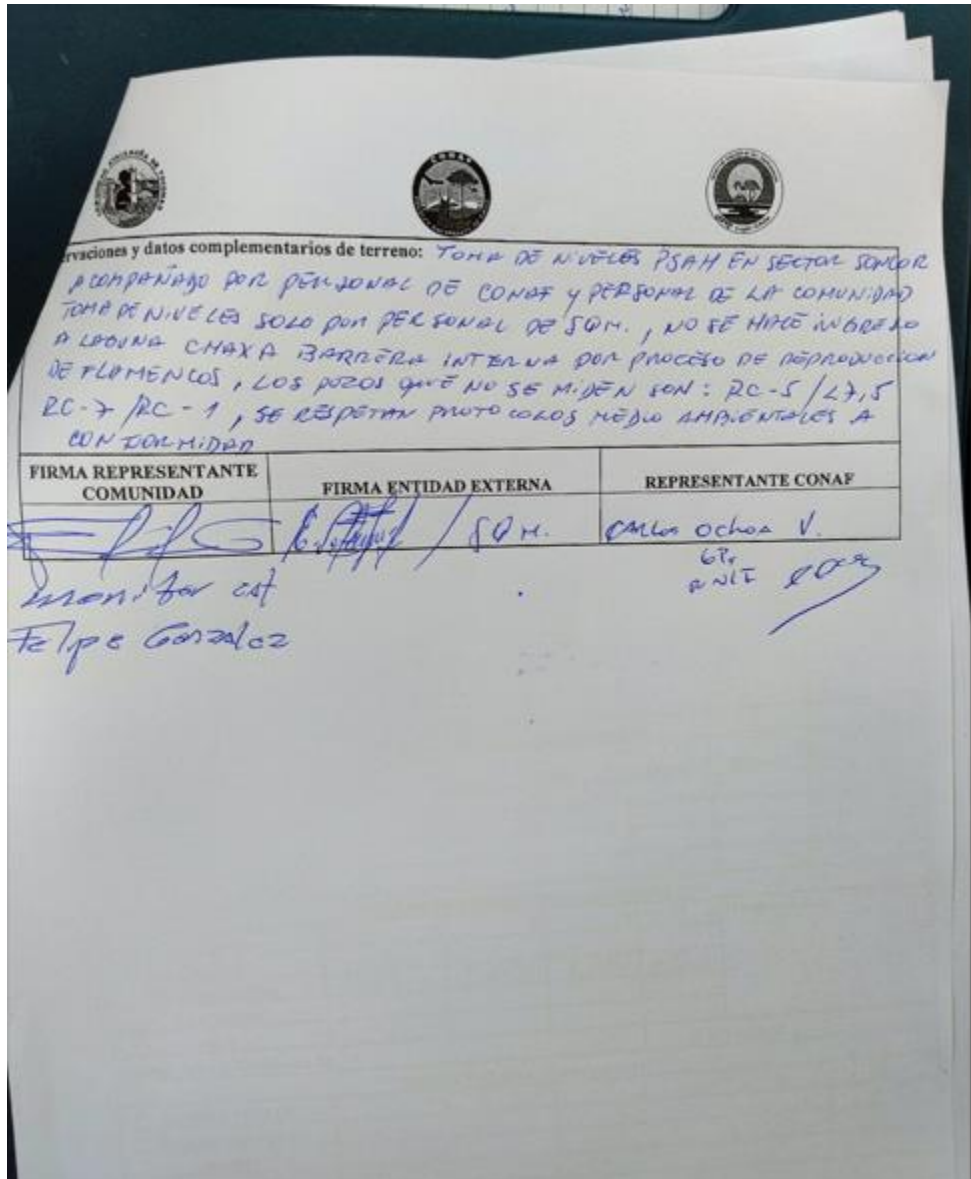 CONAF
rvaciones y datos complementarios de terreno: TOMA DE NIVELES PSAH EN SECTOR SONCOR
ACOMPAÑADO POR PERSONAL DE CONAF Y PERSONAL DE LA COMUNIDAD
TOMA DE NIVELES SOLO POR PERSONAL DE SQM. , NO SE HACE INGRESO
A LAGUNA CHAXA BARRERA INTERNA POR PROCESO DE REPRODUCCION
DE FLAMENCOS, LOS POZOS QUE NO SE MIDEN SON: RC-5 / L7,5
RC-7 / RC-1 , SE RESPETAN PROTOCOLOS MEDIO AMBIENTALES A
CONFORMIDAD
FIRMA REPRESENTANTE COMUNIDAD
FIRMA ENTIDAD EXTERNA
REPRESENTANTE CONAF
/ SQM.
CARLOS OCHOA V.
monitor
Felipe Gonzalez